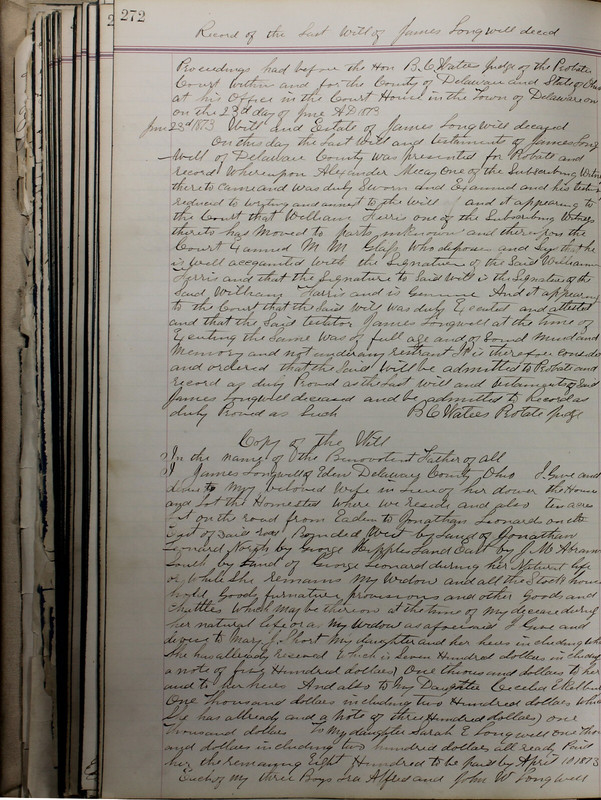 2
272
Record of the Last Will of James Longwill decd
Proceedings had before the Hon B. C. Waters Judge of the Probate
Court within and for the County of Delaware and State of Ohio
at his Office in the Court House in the Town of Delaware on
on the 23d day of June AD 1873
June 23d 1873 Will and Estate of James Longwill deceased
On this day the Last Will and testament of James Long
Will of Delaware County was presented for Probate and
record Whereupon Alexander one of the Subscribing Witness
thereto came and was duly Sworn and Examined and his testimony
reduced to writing and annext to the Will and it appearing to
the Court that William Ferris one of the Subscribing Witness
thereto has Moved to parts unknown and thereupon the
Court Examined M. M. Glass who deposes and Say that he
is well acquainted with the Signature of the Said William
Ferris and that the Signature to Said will is the Signature of the
Said William Ferris and is Genuine And it appearing
to the Court that the Said Will was duly Executed and attested
and that the Said testator James Longwill at the time of
Executing the Same was of full age and of Sound Mind and
Memory and not under any restraint It is therefore Considered
and ordered that the Said Will be admitted to Probate and
record as duly Proved as the Last Will and testament of Said
James Longwill deceased and be admitted to Record as
duly Proved as Such B C Waters Probate Judge
Copy of the Will
In the name of the Benevolent Father of all
I James Longwill of Eden Delaware County Ohio I Give and
devise to My beloved Wife in Lieu of her dower the House
and Lot the Homested where we reside and also ten acres
Lot on the road from Eden to Jonathan Leonards on the
East of Said road Bounded West by Land of Jonathan
Leonard North by George Whipples Land East by J. M.
South by Land of George Leonard during her Natural life
or While She remains My Widow and all the Stock house
hold Goods furniture provisions and other Goods and
Chattles which may be thereon at the time of my decease during
her natural life or as My Widow as aforesaid I Give and
devise to Mary J. Short My daughter and her heirs including what
She has already received Which is Seven Hundred dollars including
a note of five Hundred dollars) One thousand dollars to her
and to her heirs And also to My Daughter Cecelia
One thousand dollars including two Hundred dollars which
She has allready and a note of three Hundred dollars) one
thousand dollars To My daughter Sarah E Longwill one thous
and dollars including two hundred dollars all ready Paid
her the remaining Eight Hundred to be paid by April 10 1873
Each of my three Boys Ira Alfred and John W Longwill